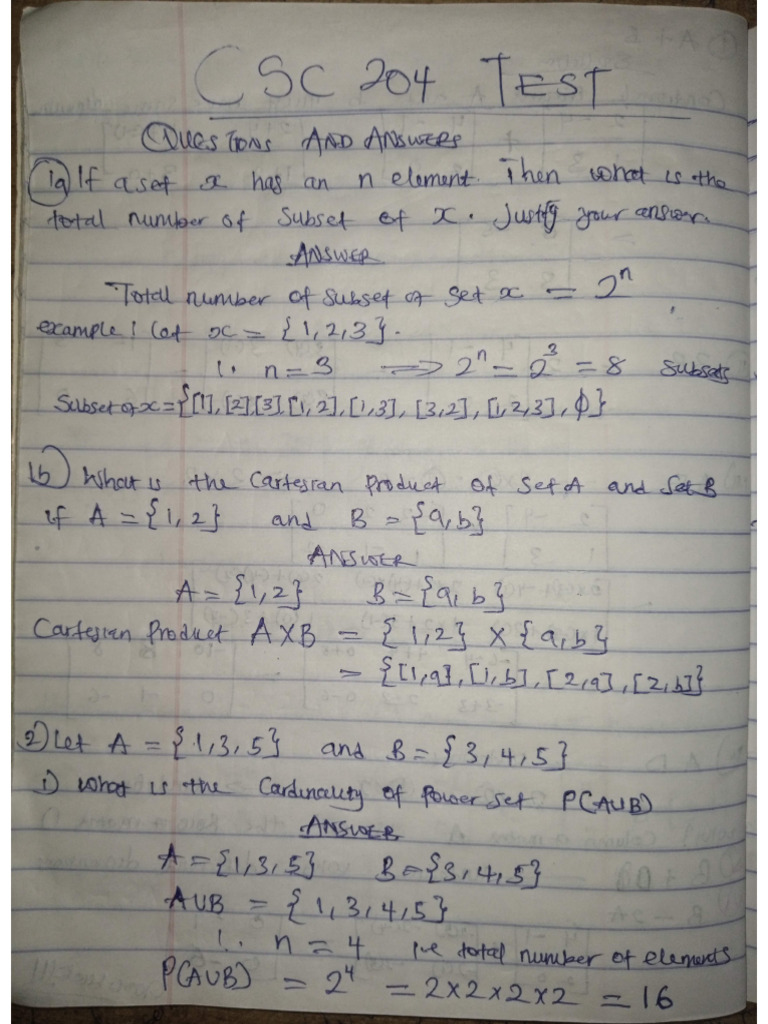 CSC 204 TEST
QUESTIONS AND ANSWERS
1a) If a set x has an n element. Then what is the
total number of subset of x. Justify your answer.
ANSWER
Total number of subset of set x = 2ⁿ
example: let x = {1,2,3}.
∴ n = 3 ⟹ 2ⁿ = 2³ = 8 subsets
Subset of x = {[1], [2] [3] [1, 2], [1,3], [3,2], [1,2,3], ϕ}
1b) What is the Cartesian Product of Set A and Set B
if A = {1,2} and B = {a,b}
ANSWER
A = {1,2} B = {a, b}
Cartesian Product A X B = {1,2} X {a,b}
= {[1,a], [1,b], [2,a], [2,b]}
2) Let A = {1,3,5} and B = {3,4,5}
i) What is the Cardinality of Power Set P(AUB)
ANSWER
A = {1,3,5} B = {3,4,5}
AUB = {1,3,4,5}
∴ n = 4 i.e total number of elements
P(AUB) = 2⁴ = 2x2x2x2 = 16